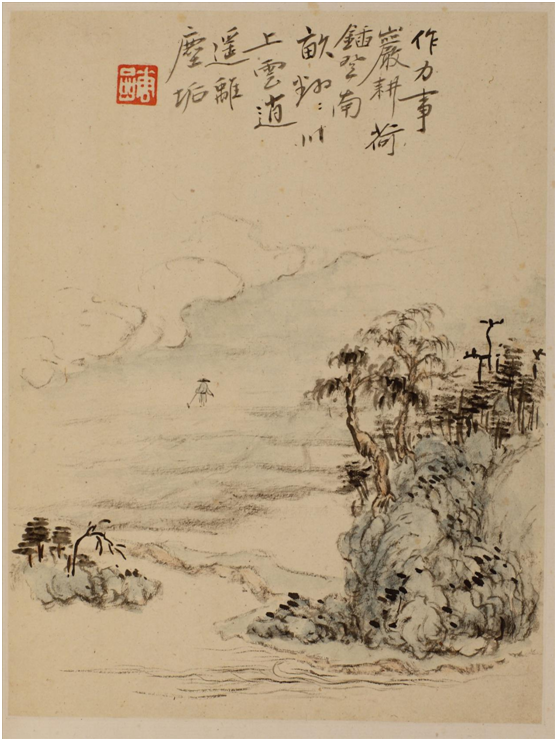 作力事
巖耕荷
鍤登南
畝川
上雲逍
遥離
塵垢